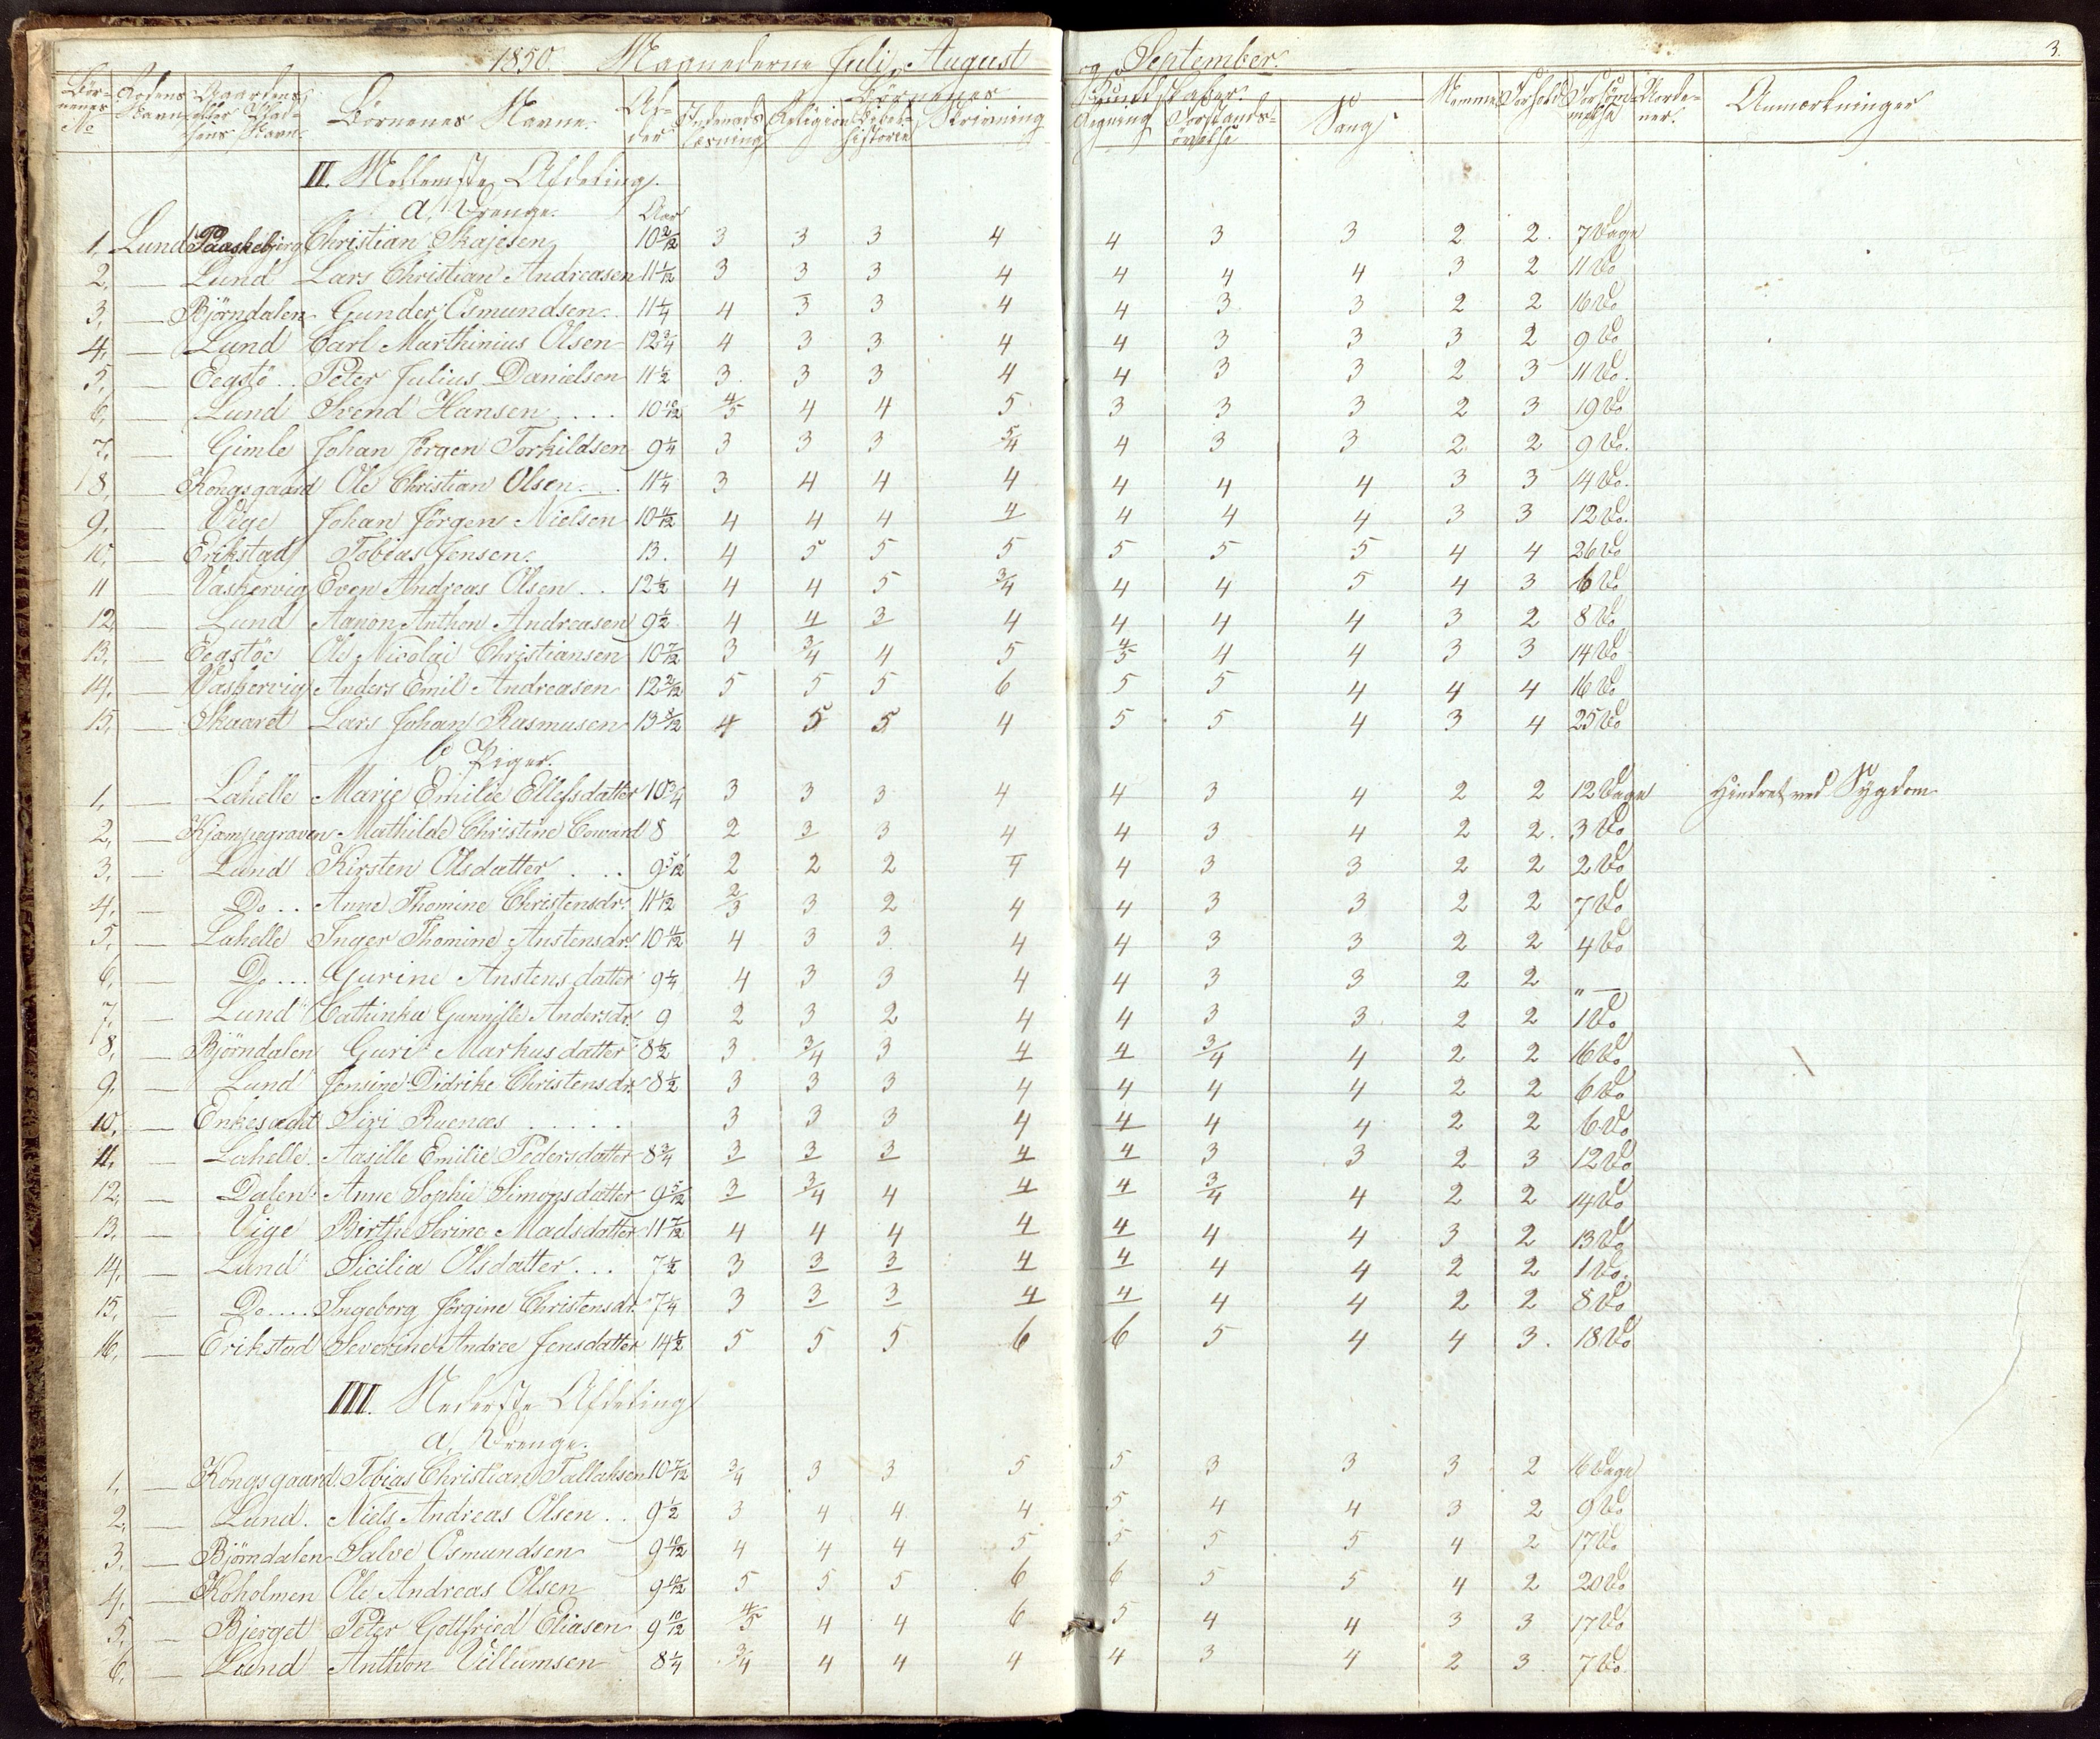 1850. Maanederne Juli, August og September. 3.
Børnenes No Rodens Navn Gaardens eller Pladsens Navn. Børnenes Navne. Alder Børnenes Kundskaber. Nemme Forhold Forsømmelse Anmærkninger
Indenadslæsning Religion Bibelhistorie Skrivning Regning Forstandsøvelse Sang
II. Mellemste Afdeling.
a, Drenge. Aar
1, Lund Paaskebjerg Christian Skajesen, 10 2/12 3 3 3 4 4 3 3 2 2. 7 Dage
2, — Lund Lars Christian Andreasen 11 1/12 3 3 3 4 4 4 4 3 2 11 Do
3, — Björndalen Gunder Osmundsen. 11 1/4 4 3 3 4 4 3 3 2 2 16 Do
4, — Lund Carl Marthinius Olsen 12 3/4 4 3 3 4 4 3 3 3 2 9 Do
5, — Eegstö.. Peter Julius Danielsen 11 1/2 3. 3 3 4 4 3 3 2 3 11 Do.
6, — Lund Svend Hansen.... 10 10/12 4/5 4 4 5 3 3 3 2 3 19 Do
7, — Gimle Johan Jörgen Torkildsen 9 1/4 3 3 3 5/4 4 3 3 2 2 9 Do.
8, — Kongsgaard Ole Christian Olsen... 11 1/4 3 4 4 4 4 4 4 3 3 14 Do.
9, — Vige Johan Jörgen Nielsen 10 11/12 4 4 4 4 4 4 4 3 3 12 Do.
10, — Erikstad Tobias Jensen. 13. 4 5 5 5 5 5 5 4 4 26 Do
11 — Vaskervig Even Andreas Olsen.. 12 1/2 4 4 5 3/4 4 4 5 4 3 6 Do
12, — Lund Aanon Anthon Andreasen 9 1/2 4 4 3 4 4 4 4 3 2 8 Do
13, — Eegstöe Ole Nicolai Christiansen 10 7/12 3 3/4 4 5 4/5 4 4 3 3 14 Do
14, — Vaskervig Anders Emil Andreasen 12 2/12 5 5 5 6 5 5 4 4 4 16 Do
15, — Skaaret Lars Johan Rasmusen 13 8/12 4 5 5 4 5 5 4 3 4 25 Do
b Piger.
1, — Lahelle Marie Emilie Ellefsdatter 10 3/4 3 3 3 4 4 3 4 2 2 12 Dage Hindret ved Sygdom
2, — Kjæmpegraven Mathilde Christine Coward 8 2 3 3 4 4 3 4 2 2. 3 Do
3, — Lund Kirsten Olsdatter.... 9 5/12 2 2 2 4 4 3 3 2 2 2 Do
4, — Do.. Anne Thomine Christensdr. 11 1/12 2/3 3 2 4 4 3 3 2 2 7 Do
5, — Lahelle Inger Thomine Anstensdr. 10 11/12 4 3 3 4 4 3 3 2 2 4 Do
6, — Do... Gurine Anstensdatter 9 1/4 4 3 3 4 4 3 3 2 2 „ —
7, — Lund Cathinka Gunnille Andersdr. 9 2 3 2 4 4 3 3 2 2 1 Do
8, — Björndalen Guri Markusdatter 8 1/2 3 3/4 3 4 4 3/4 4 2 2 16 Do
9, — Lund Jensine Didrike Christensdr. 8 1/2 3 3 3 4 4 4 4 2 2 6 Do
10, — Enkesædet Siri Ruenæs..... 3 3 3 4 4 4 4 2 2 6 Do
11, — Lahelle. Aasille Emilie Pedersdatter 8 3/4 3 3 3 4 4 3 3 2 3 12 Do
12, — Dalen Anne Sophie Simonsdatter 9 5/12 3 3/4 4 4 4 3/4 4 2 2 14 Do
13, — Vige Birthe Serine Madsdatter 11 7/12 4 4 4 4 4 4 4 3 2 13 Do
14, — Lund Sicilia Olsdatter... 7 1/2 3 3 3 4 4 4 4 2 2 1 Do.
15, — Do.... Ingeborg Jörgine Christensdr. 7 1/4 3 3 3 4 4 4 4 2 2 8 Do
16, — Erikstad Severine Andrea Jensdatter 14 1/2 5 5 5 6 6 5 4 4 3. 18 Do
III. Nederste Afdeling
a, Drenge.
1, — Kongsgaard Tobias Christian Tallaksen 10 7/12 3/4 3 3 5 5 3 3 3 2 16 Dage
2, — Lund. Niels Andreas Olsen.. 9 1/2 3 4 4 4 5 4 4 3 2 9 Do
3, — Björndalen Salve Osmundsen 9 10/12 4 4 4 5 5 5 5 4 2 17 Do
4, — Koholmen Ole Andreas Olsen 9 10/12 5 5 5 6 6 5 5 4 2 20 Do
5, — Bjerget Peter Gottfried Eliasen 9 10/12 4/5 4 4 6 5 4 4 3 3 17 Do
6, — Lund Anthon Villumsen 8 1/4 3/4 4 4 4 4 3 4 2 3. 7 Do.